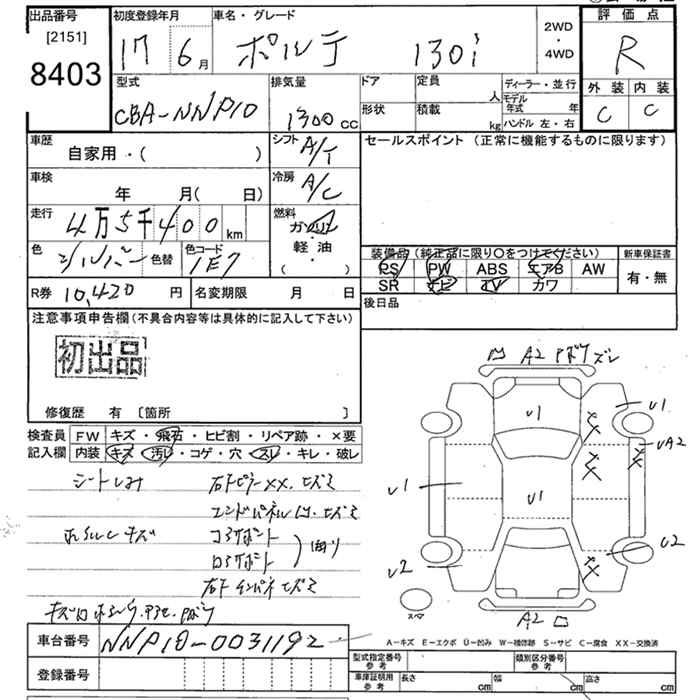 出品番号 初度登録年月 車名・グレード 2WD・4WD 評価点
[2151]
8403
17 6月 ポルテ 130i R
外装 内装
C C
型式 排気量 ドア 定員 人 ディーラー・並行
CBA-NNP10 1300 CC 形状 積載 kg モデル年式 年
ハンドル 左・右
車歴 シフト A/T セールスポイント (正常に機能するものに限ります)
自家用・( )
車検 冷房 A/C
年 月( 日)
走行 燃料
4万5千400 km ガソリン・軽油・( )
色 シルバー 色替 色コード 1E7
装備品(純正品に限り○をつけてください) 新車保証書
PS PW ABS エアB AW 有・無
SR ナビ TV カワ
R券 10,420 円 名変期限 月 日
後日品
注意事項申告欄(不具合内容等は具体的に記入して下さい)
初出品
修復歴 有 〔箇所 〕
検査員 FW キズ・飛石・ヒビ割・リペア跡・×要
記入欄 内装 キズ・汚レ・コゲ・穴・スレ・キレ・破レ
シートしみ 右Fピラー××、ヒズミ
コアサポート
A2 Pボケズレ
U1
U1
U1
UA2
U1
U2
U2
A2
スペ
車台番号 NNP10-0031192
登録番号
A-キズ E-エクボ U-凹み W-補修跡 S-サビ C-腐食 XX-交換済
型式指定番号 参考 類別区分番号 参考
車庫証明用 参考 長さ cm 幅 cm 高さ cm